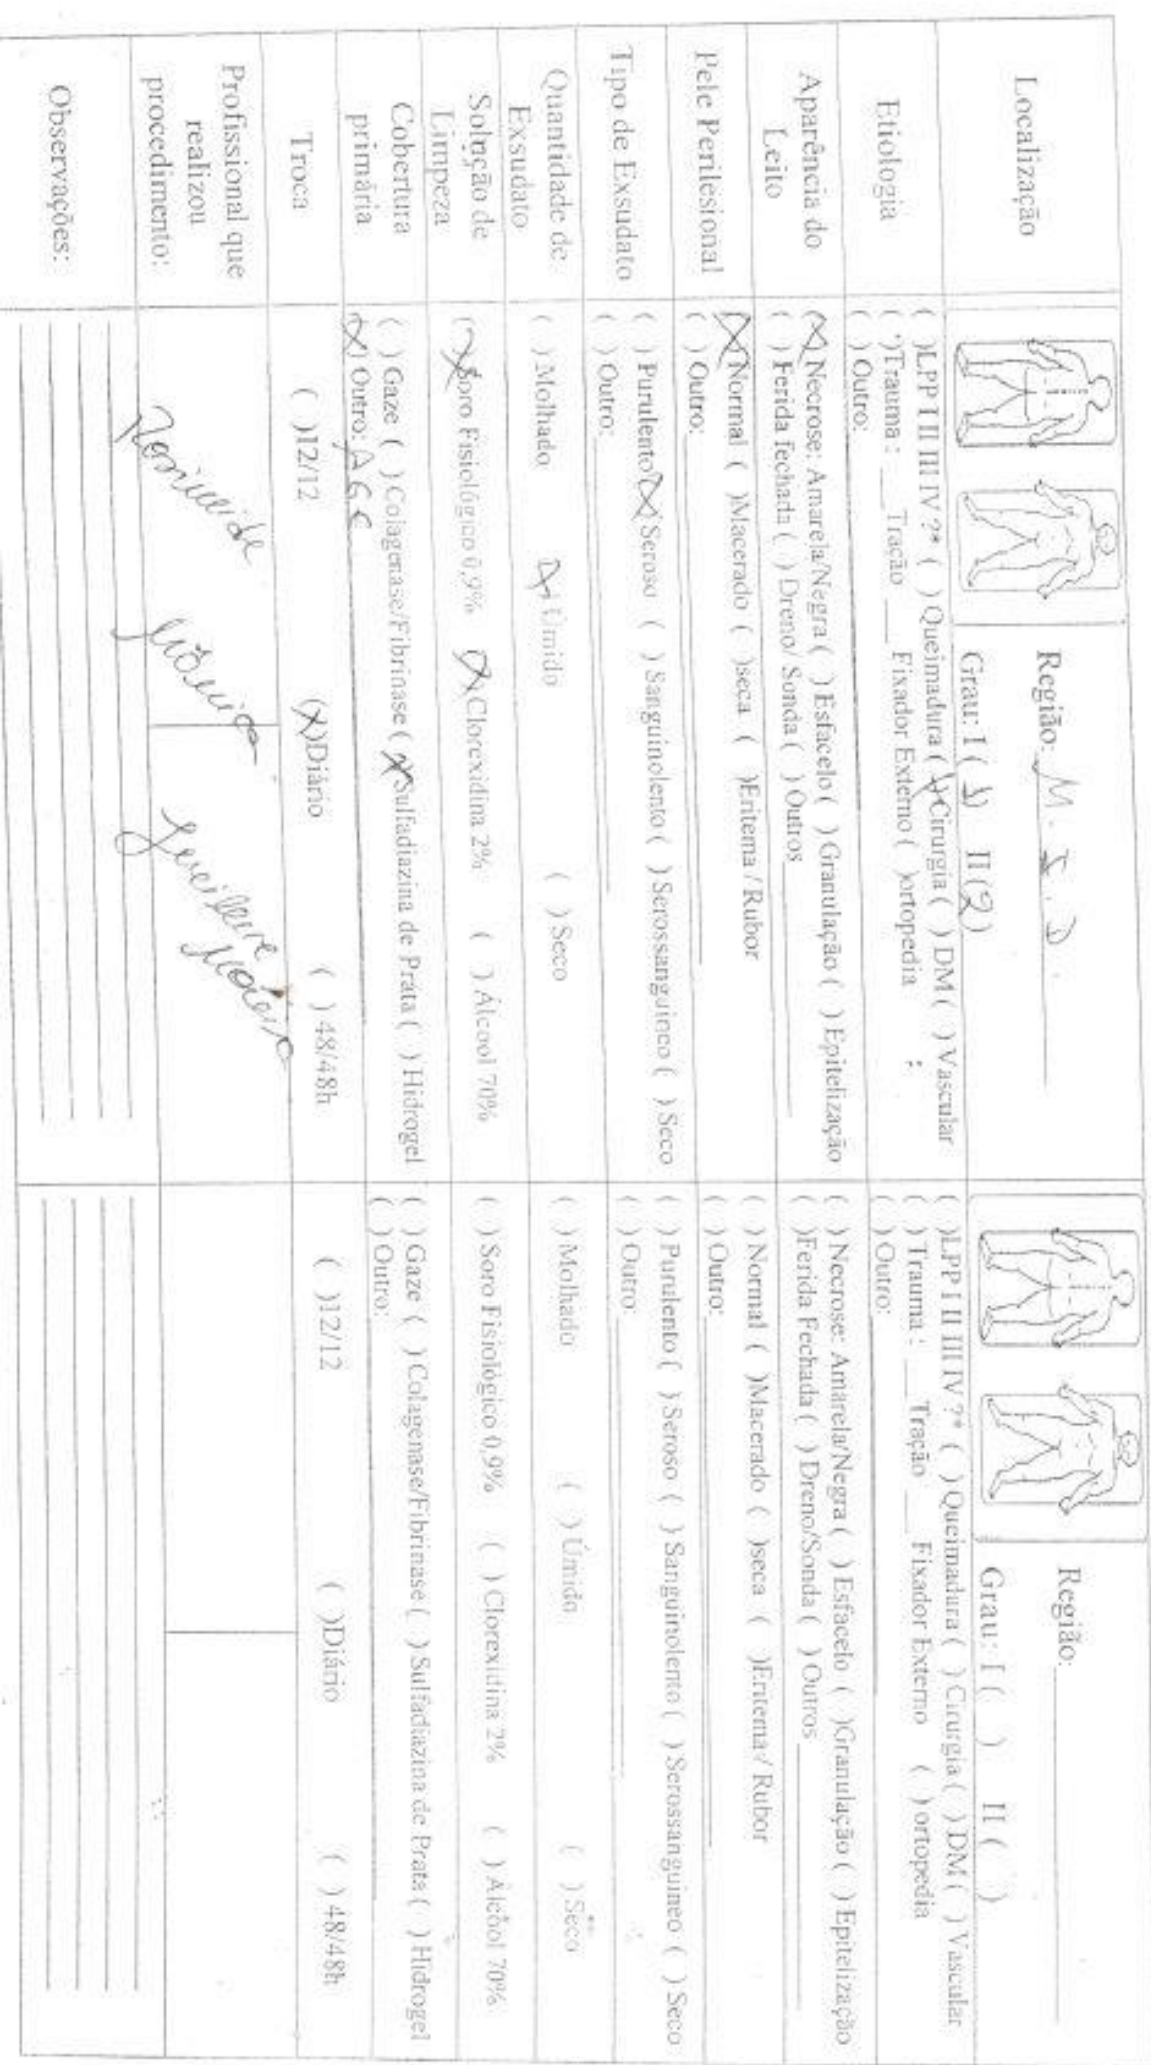 Localização
Região: M. I. D
Grau: I ( ) II (2)
Região:
Grau: I ( ) II ( )
Etiologia
( )LPP I II III IV ?* ( ) Queimadura (X)Cirurgia ( ) DM ( ) Vascular
( )Trauma : ___Tração ___ Fixador Externo ( )ortopedia
( ) Outro:
( )LPP I II III IV ?* ( ) Queimadura ( ) Cirurgia ( ) DM ( ) Vascular
( ) Trauma : ___Tração ___ Fixador Externo ( ) ortopedia
( ) Outro:
Aparência do
Leito
(X) Necrose: Amarela/Negra ( ) Esfacelo ( ) Granulação ( ) Epitelização
( ) Ferida fechada ( ) Dreno/ Sonda ( ) Outros
( ) Necrose: Amarela/Negra ( ) Esfacelo ( )Granulação ( ) Epitelização
( )Ferida Fechada ( ) Dreno/Sonda ( ) Outros
Pele Perilesional
(X)Normal ( )Macerado ( )seca ( )Eritema / Rubor
( ) Outro:
( ) Normal ( )Macerado ( )seca ( )Eritema/ Rubor
( ) Outro:
Tipo de Exsudato
( ) Purulento (X) Seroso ( ) Sanguinolento ( ) Serossanguíneo ( ) Seco
( ) Outro:
( ) Purulento ( ) Seroso ( ) Sanguinolento ( ) Serossanguíneo ( ) Seco
( ) Outro:
Quantidade de
Exsudato
( ) Molhado (X) Úmido ( ) Seco
( ) Molhado ( ) Úmido ( ) Seco
Solução de
Limpeza
(X)Soro Fisiológico 0,9% (X)Clorexidina 2% ( ) Álcool 70%
( ) Soro Fisiológico 0,9% ( ) Clorexidina 2% ( ) Álcool 70%
Cobertura
primária
( ) Gaze ( ) Colagenase/Fibrinase (X)Sulfadiazina de Prata ( ) Hidrogel
(X) Outro: A G E
( ) Gaze ( ) Colagenase/Fibrinase ( ) Sulfadiazina de Prata ( ) Hidrogel
( ) Outro:
Troca
( )12/12 (X)Diário ( ) 48/48h
( )12/12 ( )Diário ( ) 48/48h
Profissional que
realizou
procedimento:
Observações: